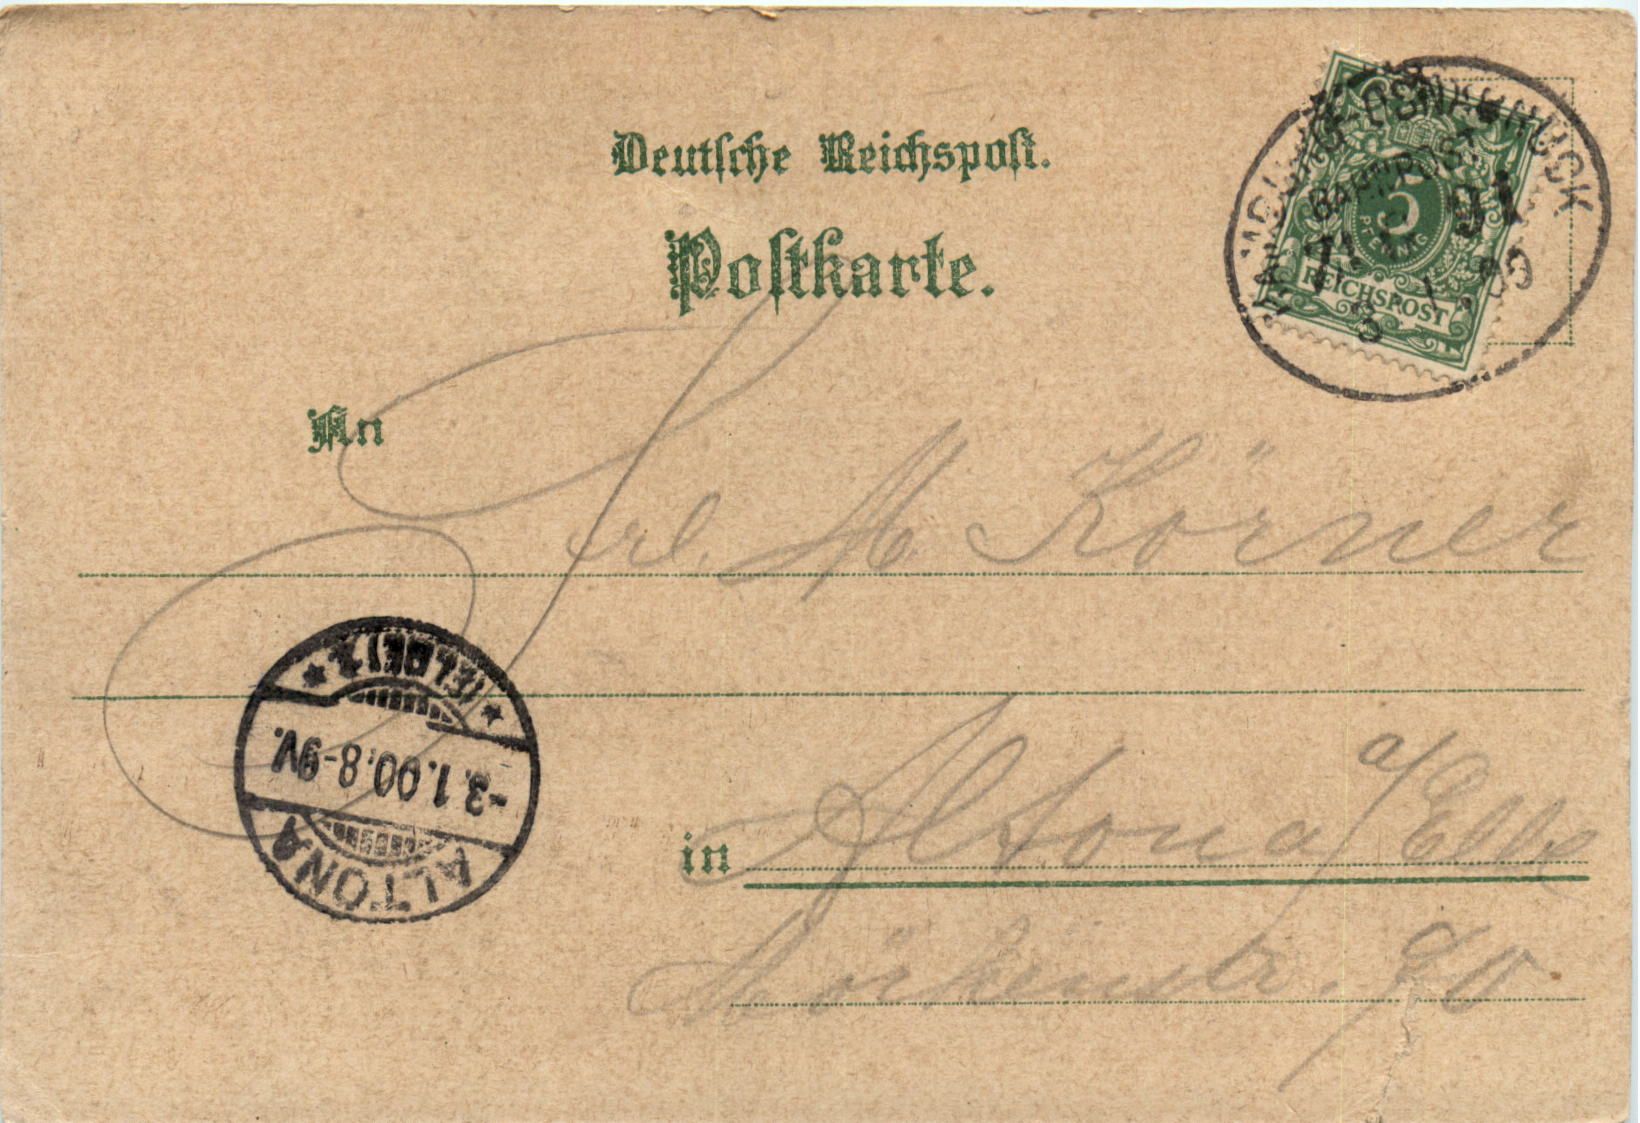 Deutsche Reichspost.
Postkarte.
HAMBURG-OSNABRÜCK
BAHNPOST
91
3 1. 00
5
PFENNIG
REICHSPOST
An
Frl. M. Körner
(ELBE) 1
-3.1.00.8-9V.
ALTONA
in Altona a/Elbe